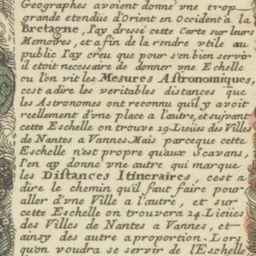 Geographes avoient donné vne trop
grande etendüe d'Orient en Occident à la
Bretagne, J'ay dressé cette Carte sur leurs
Memoires, et a fin de la rendre vtile au
public J'ay creu que pour s'en bien servir
il étoit necessaire de donner vne Eschelle
ou l'on vit les Mesures Astronomiques,
c'est a dire les veritables distances que
les Astronomes ont reconnu qu'il y avoit
reellement d'vne place a l'autre, et suivant
cette Eschelle on trouve 19. Lieües des Villes
de Nantes a Vannes. Mais parceque cette
Eschelle n'est propre qu'aux Scavans,
J'en ay donné vne autre qui marque
les Distances Itineraires, c'est a
dire le chemin qu'il faut faire pour
aller d'vne Ville a l'autre, et sur
cette Eschelle on trouvera 24 Lieües
des Villes de Nantes a Vannes, et
ainsy des autre a proportion. Lors
qu'on voudra se servir de l'Eschelle